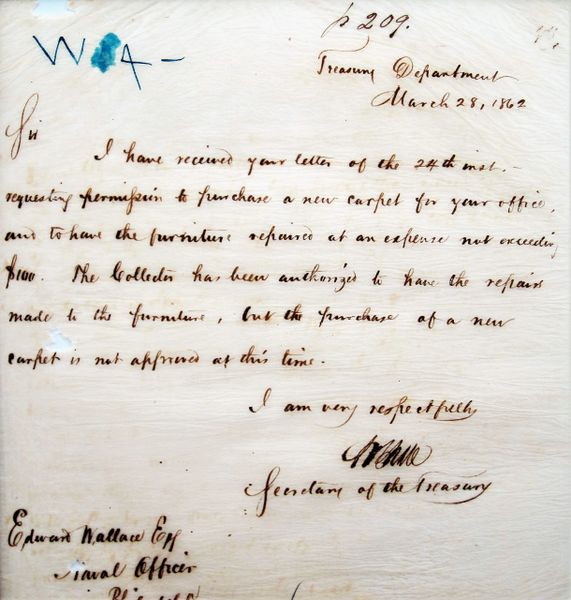 p 209.
W 4 -
Treasury Department
March 28, 1862
Sir
I have received your letter of the 24th inst. -
requesting permission to purchase a new carpet for your office,
and to have the furniture repaired at an expense not exceeding
$100. The Collector has been authorized to have the repairs
made to the furniture, but the purchase of a new
carpet is not approved at this time.
I am very respectfully
Secretary of the Treasury
Edward Wallace Esq
Naval Officer